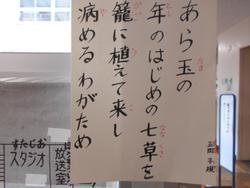 あら玉の
年のはじめの七草を
籠に植えて来し
病めるわがため
正岡 子規
すたじお
スタジオ
放送室